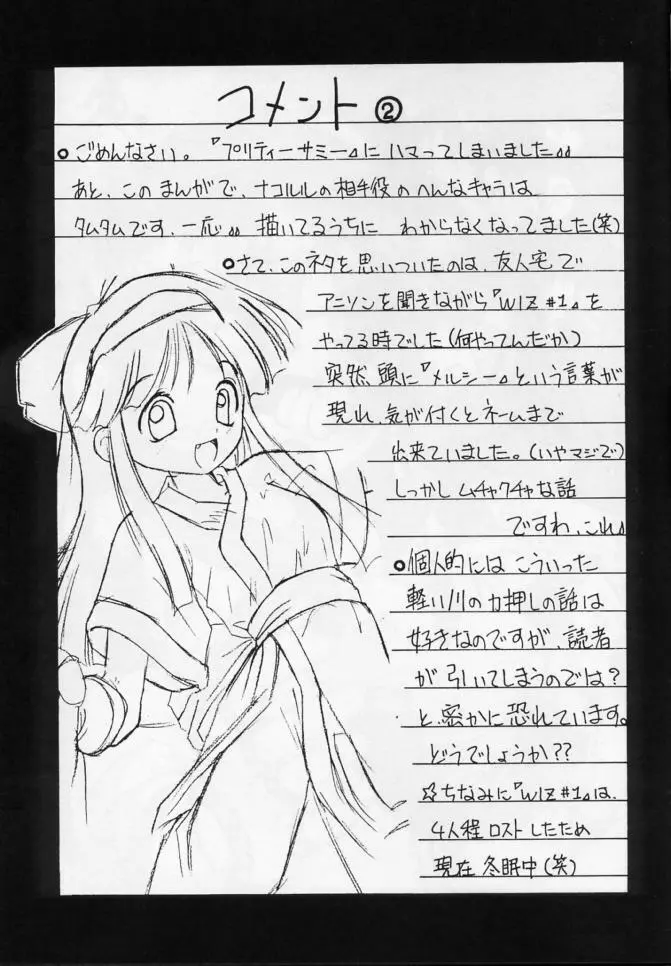 コメント②
○ごめんなさい。『プリティーサミー』に ハマってしまいました。。
あと、このまんがで、ナコルルの相手役のへんなキャラは
タムタムです、一応。。 描いてるうちに わからなくなってました(笑)
○さて、このネタを思いついたのは、友人宅で
アニソンを聞きながら『WIZ #1』を
やってる時でした(何やってんだか)
突然、頭に『メルシー』という言葉が
現れ、気が付くとネームまで
出来ていました。(いやマジで)
しっかし ムチャクチャな話
ですわ、これ。
○個人的には こういった
軽いノリの力押しの話は
好きなのですが、読者
が引いてしまうのでは?
と、密かに恐れています。
どうでしょうか??
☆ちなみに『WIZ #1』は、
4人程 ロストしたため
現在 冬眠中(笑)